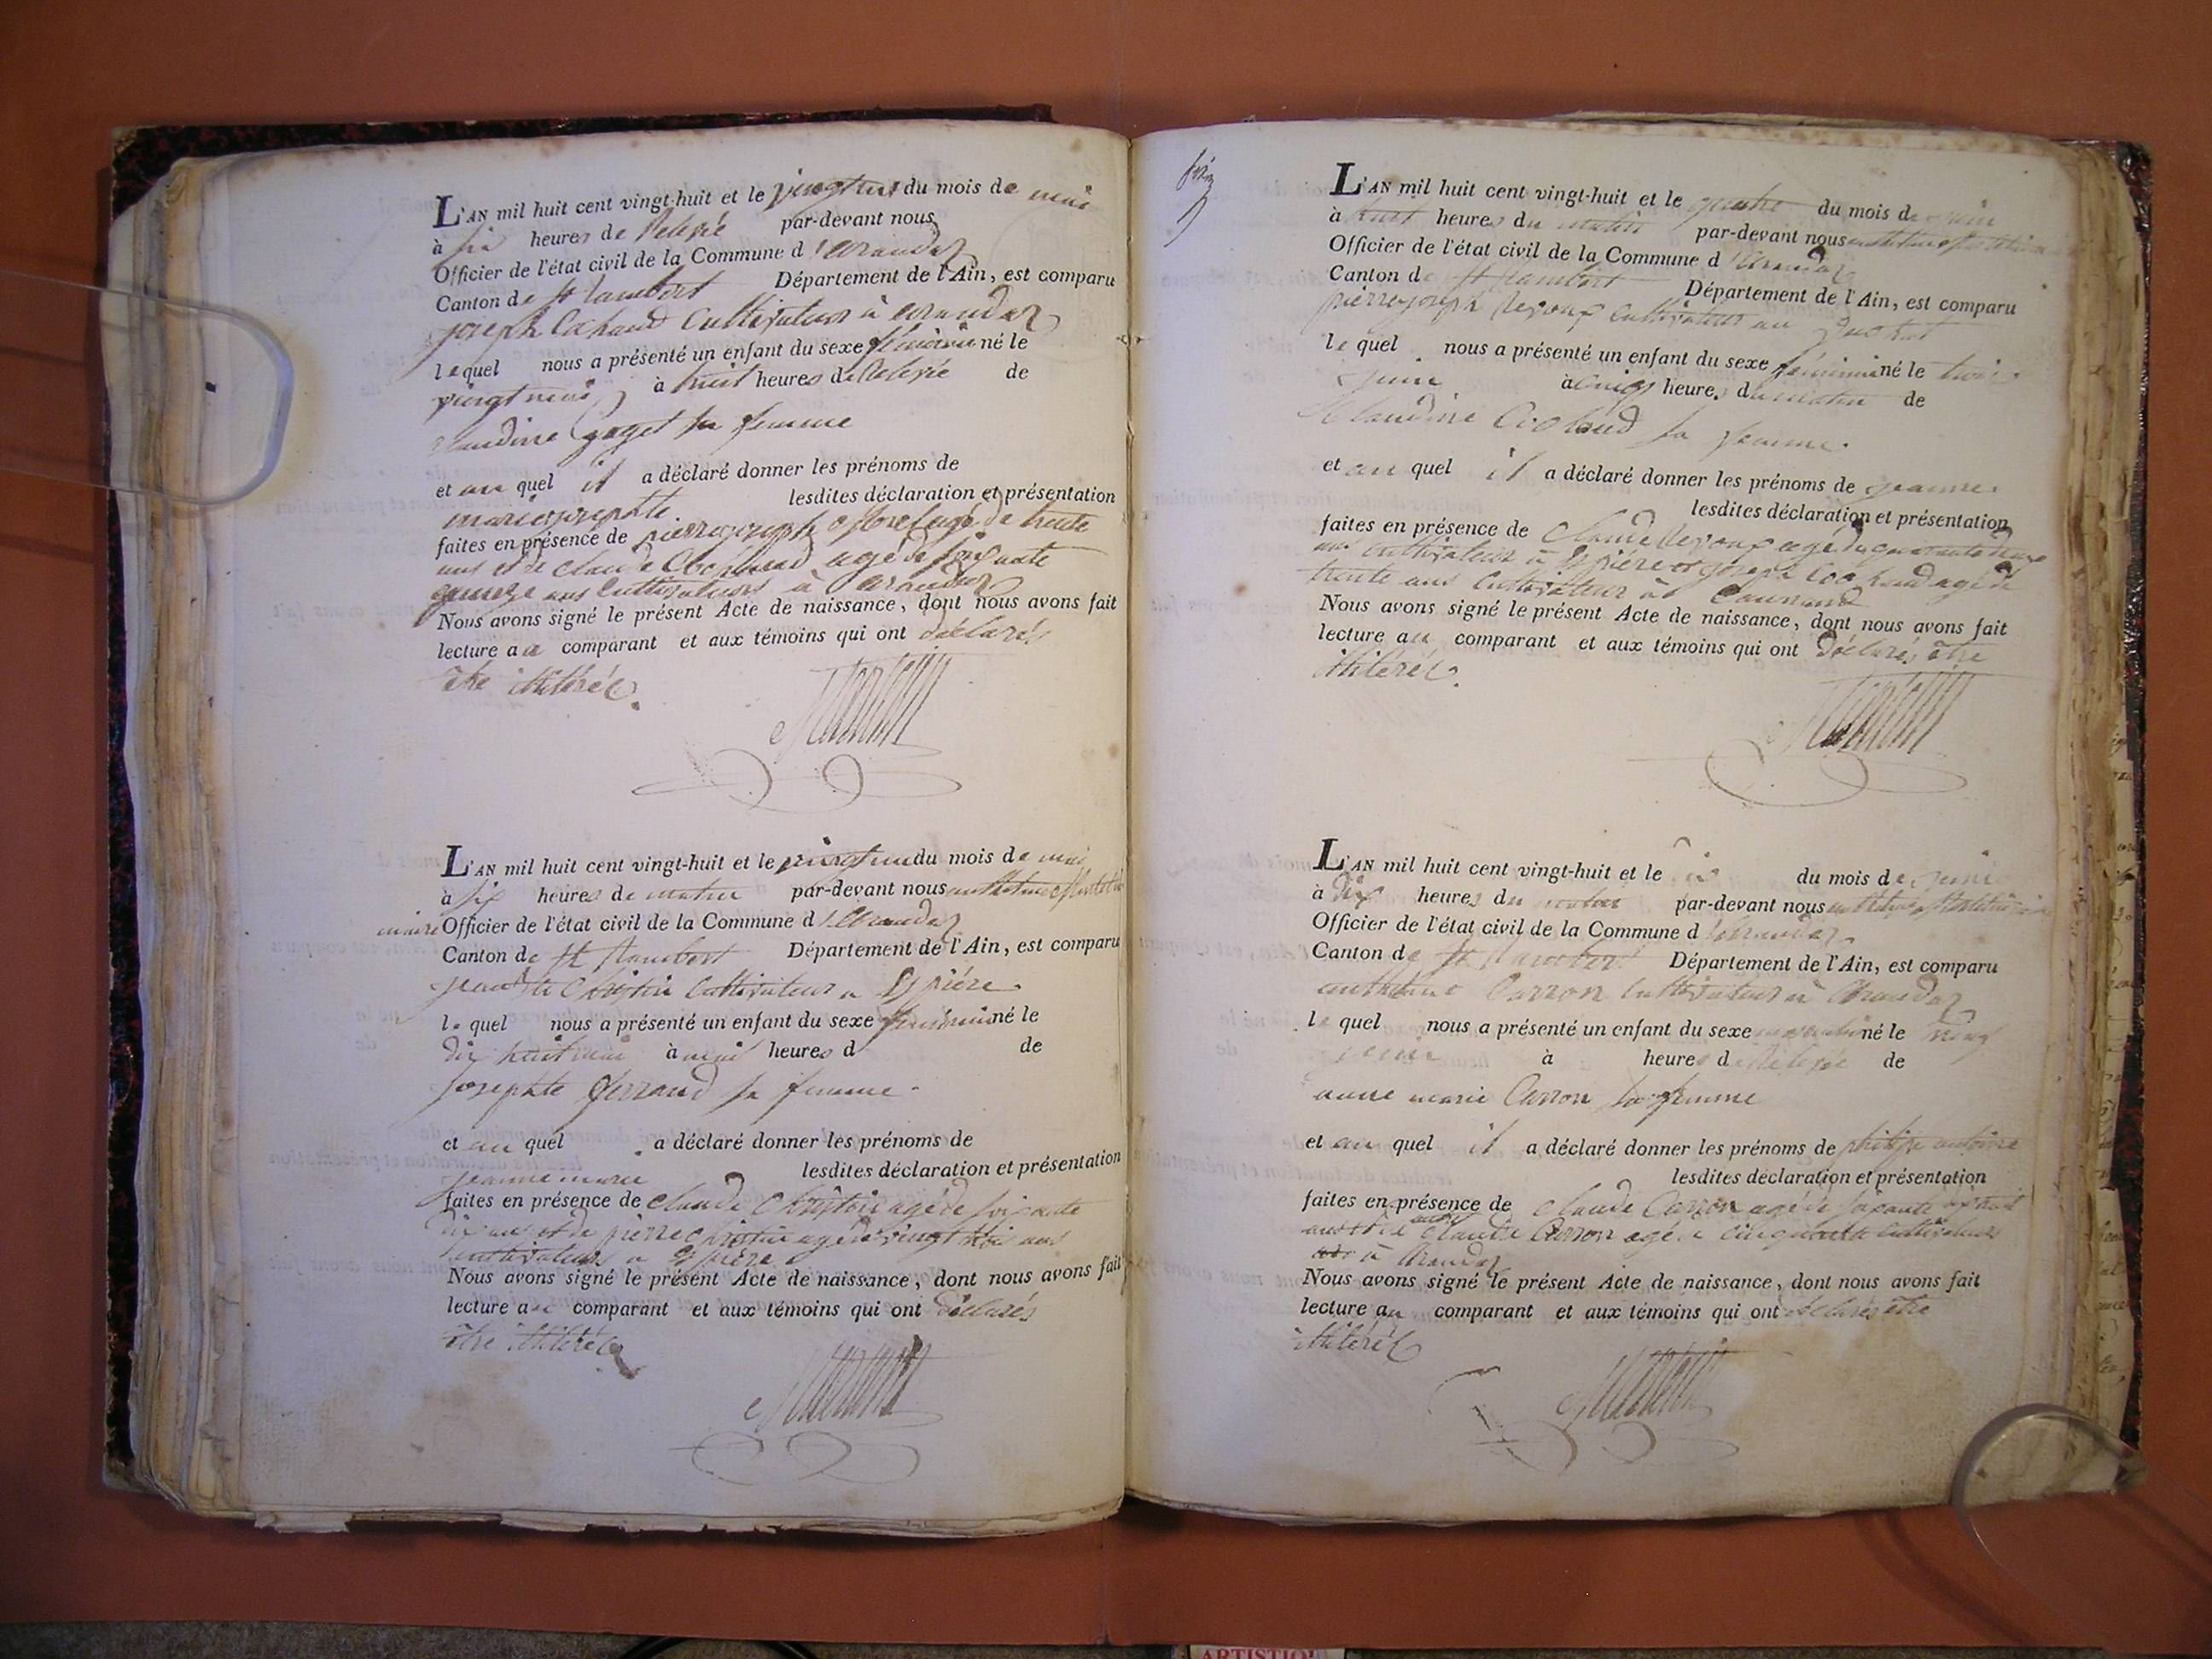 L'AN mil huit cent vingt-huit et le vingt un du mois de mai
à six heures de relevée par-devant nous
Officier de l'état civil de la Commune d'arandas
Canton de St Rambert Département de l'Ain, est comparu
joseph Cochaud Cultivateur à arandas
lequel nous a présenté un enfant du sexe féminin né le
vingt mai à huit heures de relevée de
claudine goget sa femme
et au quel il a déclaré donner les prénoms de
marie josephte lesdites déclaration et présentation
faites en présence de pierre joseph agé de trente
ans et de claude agé de soixante
quinze ans Cultivateurs à arandas
Nous avons signé le présent Acte de naissance, dont nous avons fait
lecture au comparant et aux témoins qui ont déclarés
être illiterés
L'AN mil huit cent vingt-huit et le vingt un du mois de mai
à six heures de matin par-devant nous anthelme
maire Officier de l'état civil de la Commune d'arandas
Canton de St Rambert Département de l'Ain, est comparu
jean Bte Christin Cultivateur a
le quel nous a présenté un enfant du sexe féminin né le
dix huit mai à heures d de
josephte ferrand sa femme
et au quel a déclaré donner les prénoms de
jeanne marie lesdites déclaration et présentation
faites en présence de claude Christin agé de soixante
dix ans et de pierre christin agé de vingt ans
cultivateurs a
Nous avons signé le présent Acte de naissance, dont nous avons fait
lecture au comparant et aux témoins qui ont déclarés
être illiterés
L'AN mil huit cent vingt-huit et le quatre du mois de juin
à huit heures du matin par-devant nous anthelme
Officier de l'état civil de la Commune d'arandas
Canton de St Rambert Département de l'Ain, est comparu
pierre joseph Cultivateur au
le quel nous a présenté un enfant du sexe féminin né le trois
juin à cinq heures du matin de
Claudine sa femme
et au quel il a déclaré donner les prénoms de jeanne
lesdites déclaration et présentation
faites en présence de Claude agé de quarante deux
ans cultivateur à et joseph Cochaud agé de
trente ans Cultivateur à
Nous avons signé le présent Acte de naissance, dont nous avons fait
lecture au comparant et aux témoins qui ont déclarés être
illiterés
L'AN mil huit cent vingt-huit et le du mois de juin
à dix heures du matin par-devant nous anthelme
Officier de l'état civil de la Commune d'arandas
Canton de St Rambert Département de l'Ain, est comparu
anthelme Carron Cultivateur à arandas
le quel nous a présenté un enfant du sexe masculin né le cinq
juin à heures de relevée de
anne marie Carron sa femme
et au quel il a déclaré donner les prénoms de philipe antoine
lesdites déclaration et présentation
faites en présence de claude Carron agé de soixante
ans et de claude Carron agé de cinquante cultivateurs
à arandas
Nous avons signé le présent Acte de naissance, dont nous avons fait
lecture au comparant et aux témoins qui ont declarés être
illiterés